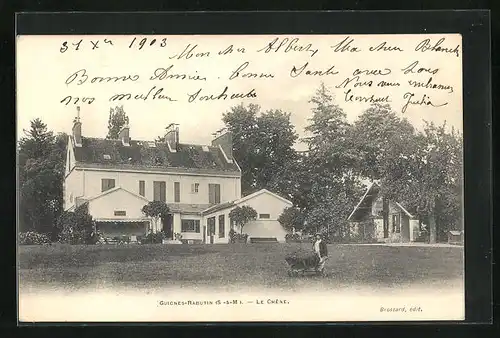 31 Xre 1903 Mon cher Albert, Ma chère Blanche
Bonne Année, bonne Santé avec tous
nos meilleurs Souhaits. Nous vous embrassons
GUIGNES-RABUTIN (S-&-M). — LE CHÊNE.
Brossard, édit.